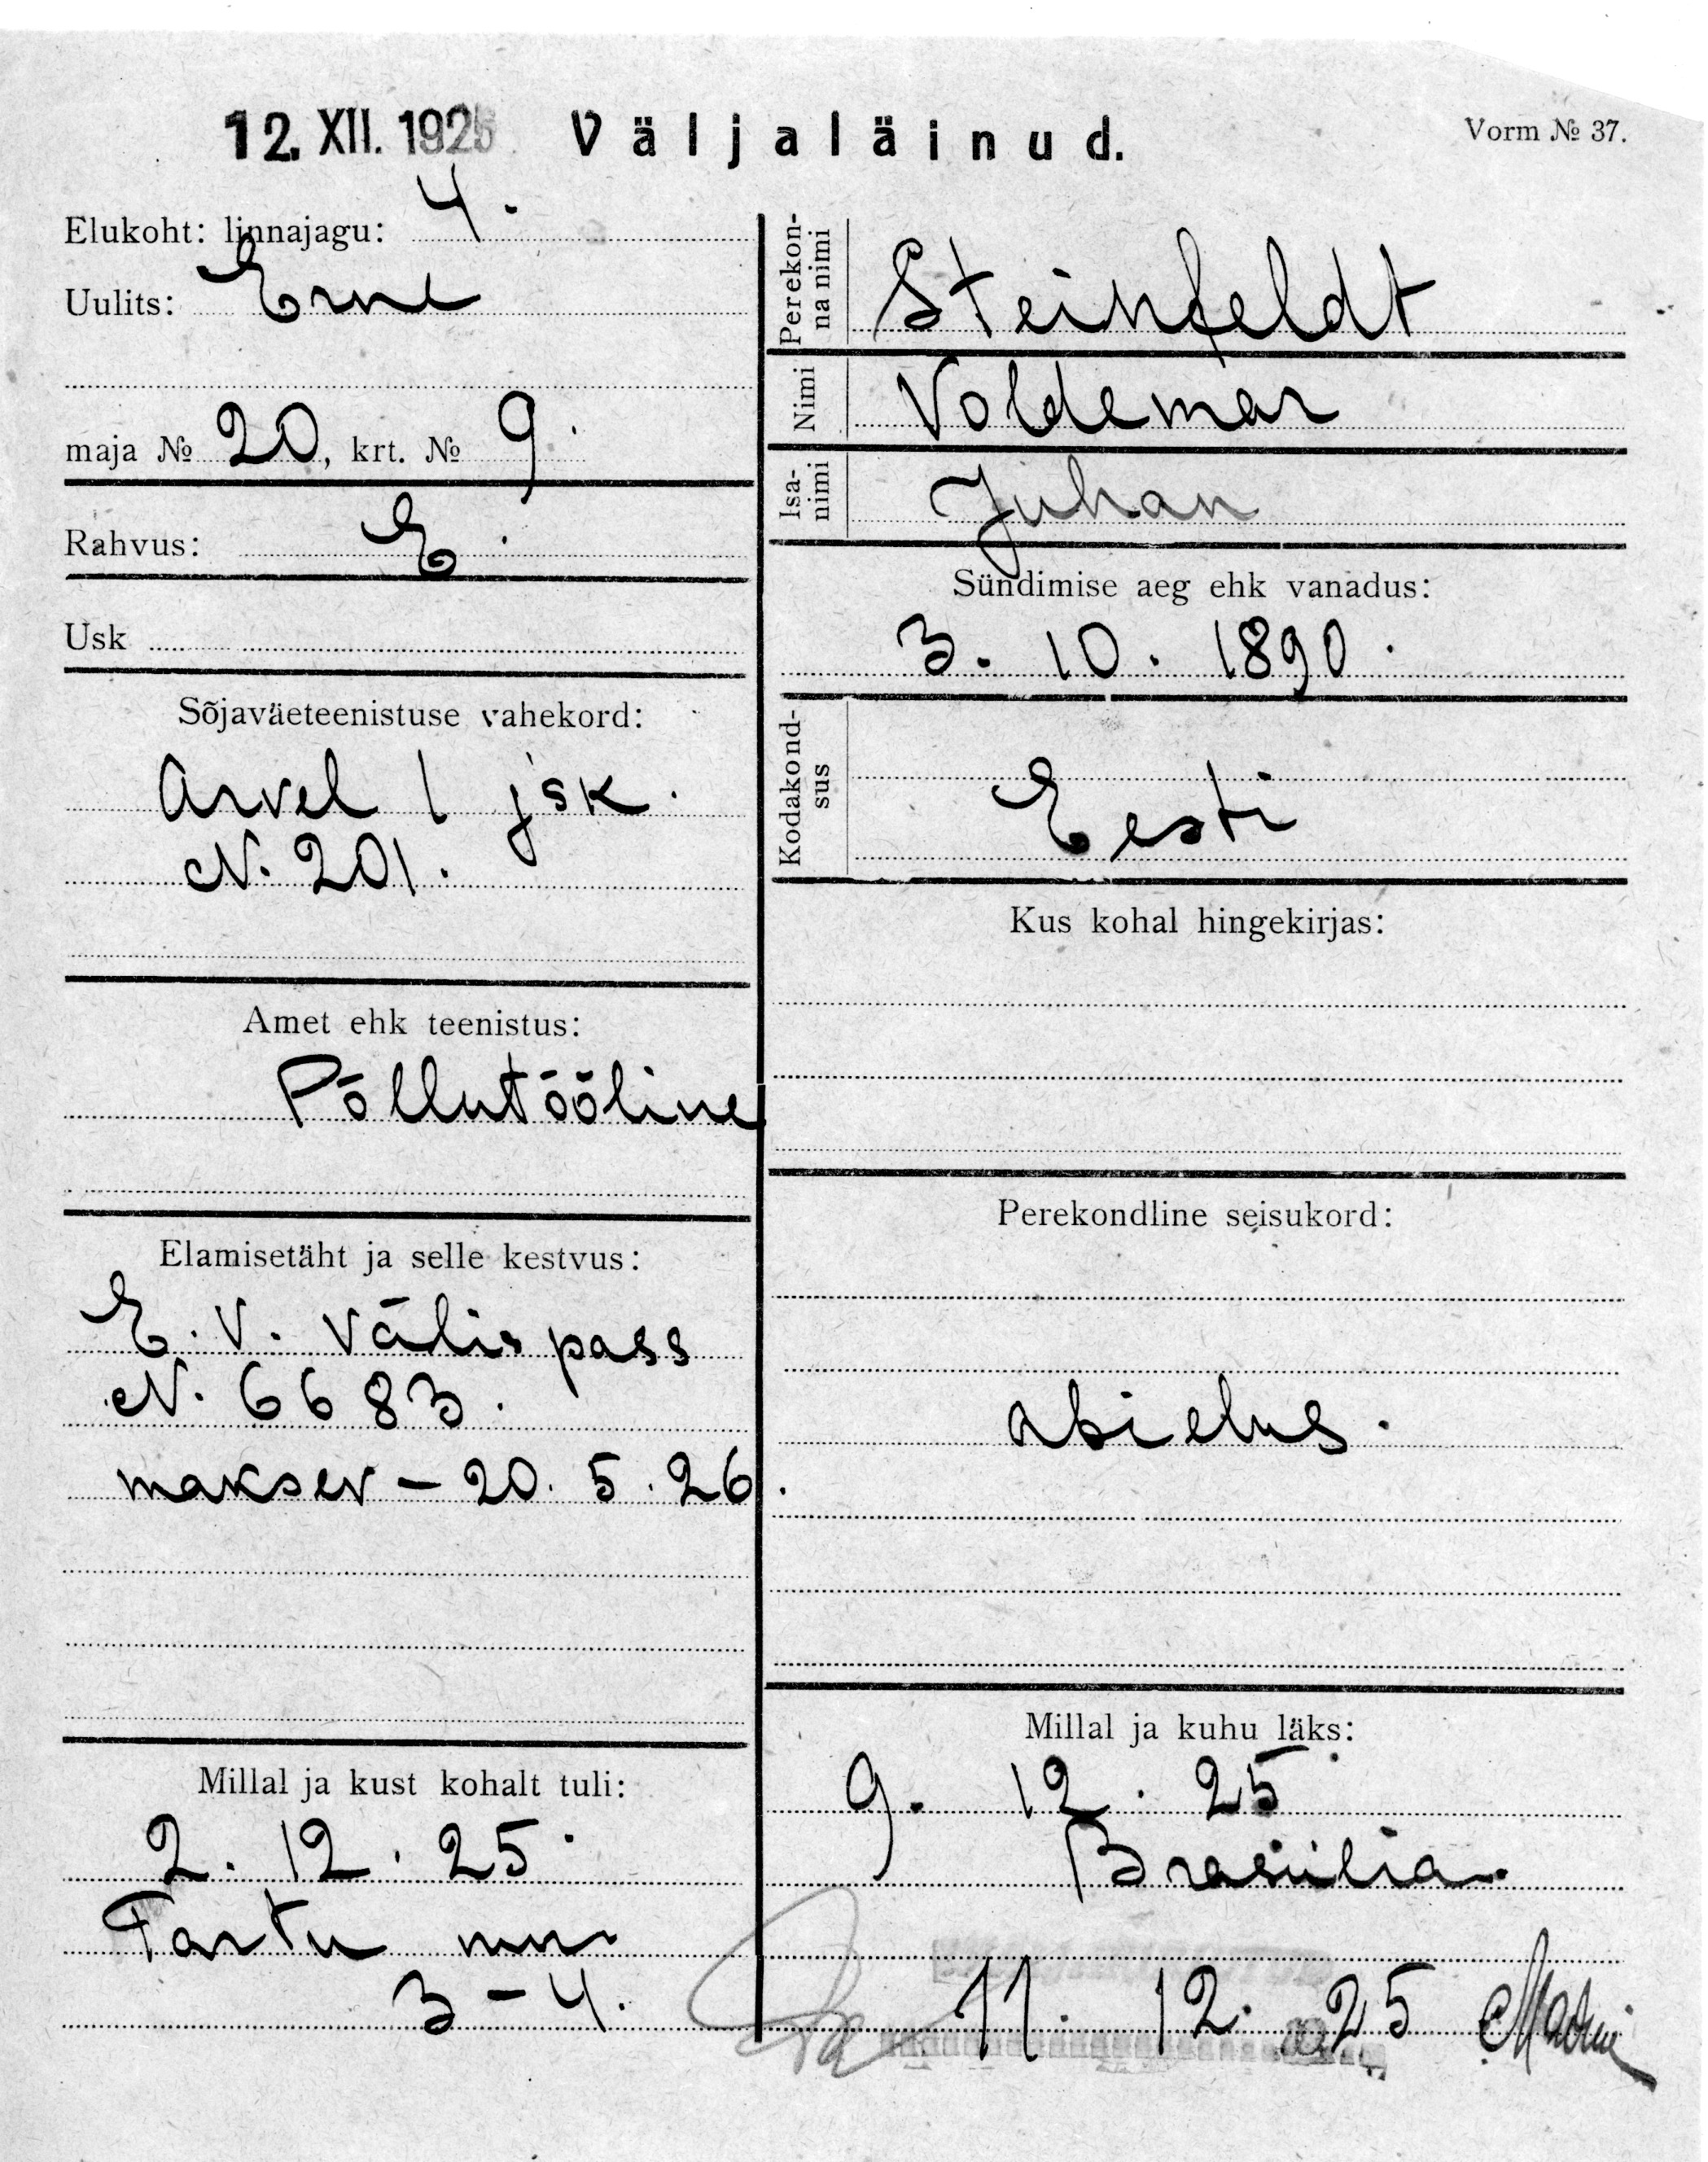 12. XII. 1925 Väljaläinud.
Vorm № 37.
Elukoht: linnajagu: 4.
Uulits: Erne
maja № 20, krt. № 9.
Rahvus: E.
Usk
Sõjaväeteenistuse vahekord:
Arvel 1 jsk.
N. 201.
Amet ehk teenistus:
Põllutööline
Elamisetäht ja selle kestvus:
E. V. välispass
N. 6683.
maksev – 20. 5. 26.
Millal ja kust kohalt tuli:
2. 12. 25.
Tartu mn.
3 – 4.
Perekonna nimi
Steinfeldt
Nimi
Voldemar
Isanimi
Juhan
Sündimise aeg ehk vanadus:
3. 10. 1890.
Kodakondsus
Eesti
Kus kohal hingekirjas:
Perekondline seisukord:
abielus.
Millal ja kuhu läks:
9. 12. 25.
Brasiilia.
11. 12. 25